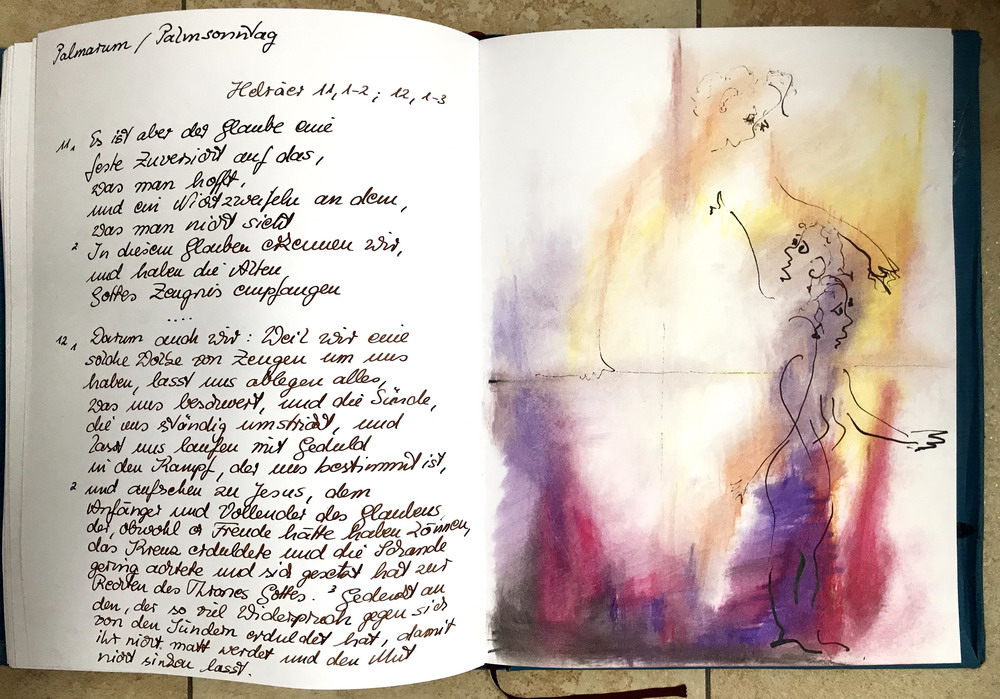 Palmarum / Palmsonntag
Hebräer 11,1-2; 12,1-3
11,1 Es ist aber der Glaube eine
feste Zuversicht auf das,
was man hofft,
und ein Nichtzweifeln an dem,
was man nicht sieht
2 In diesem Glauben erkennen wir,
und haben die Alten,
Gottes Zeugnis empfangen
....
12,1 Darum auch wir: Weil wir eine
solche Wolke von Zeugen um uns
haben, lasst uns ablegen alles,
was uns beschwert, und die Sünde,
die uns ständig umstrickt, und
lasst uns laufen mit Geduld
in den Kampf, der uns bestimmt ist,
2 und aufsehen zu Jesus, dem
Anfänger und Vollender des Glaubens,
der, obwohl er Freude hätte haben können,
das Kreuz erduldete und die Schande
gering achtete und sich gesetzt hat zur
Rechten des Thrones Gottes. 3 Gedenkt an
den, der so viel Widerspruch gegen sich
von den Sündern erduldet hat, damit
ihr nicht matt werdet und den Mut
nicht sinken lasst.